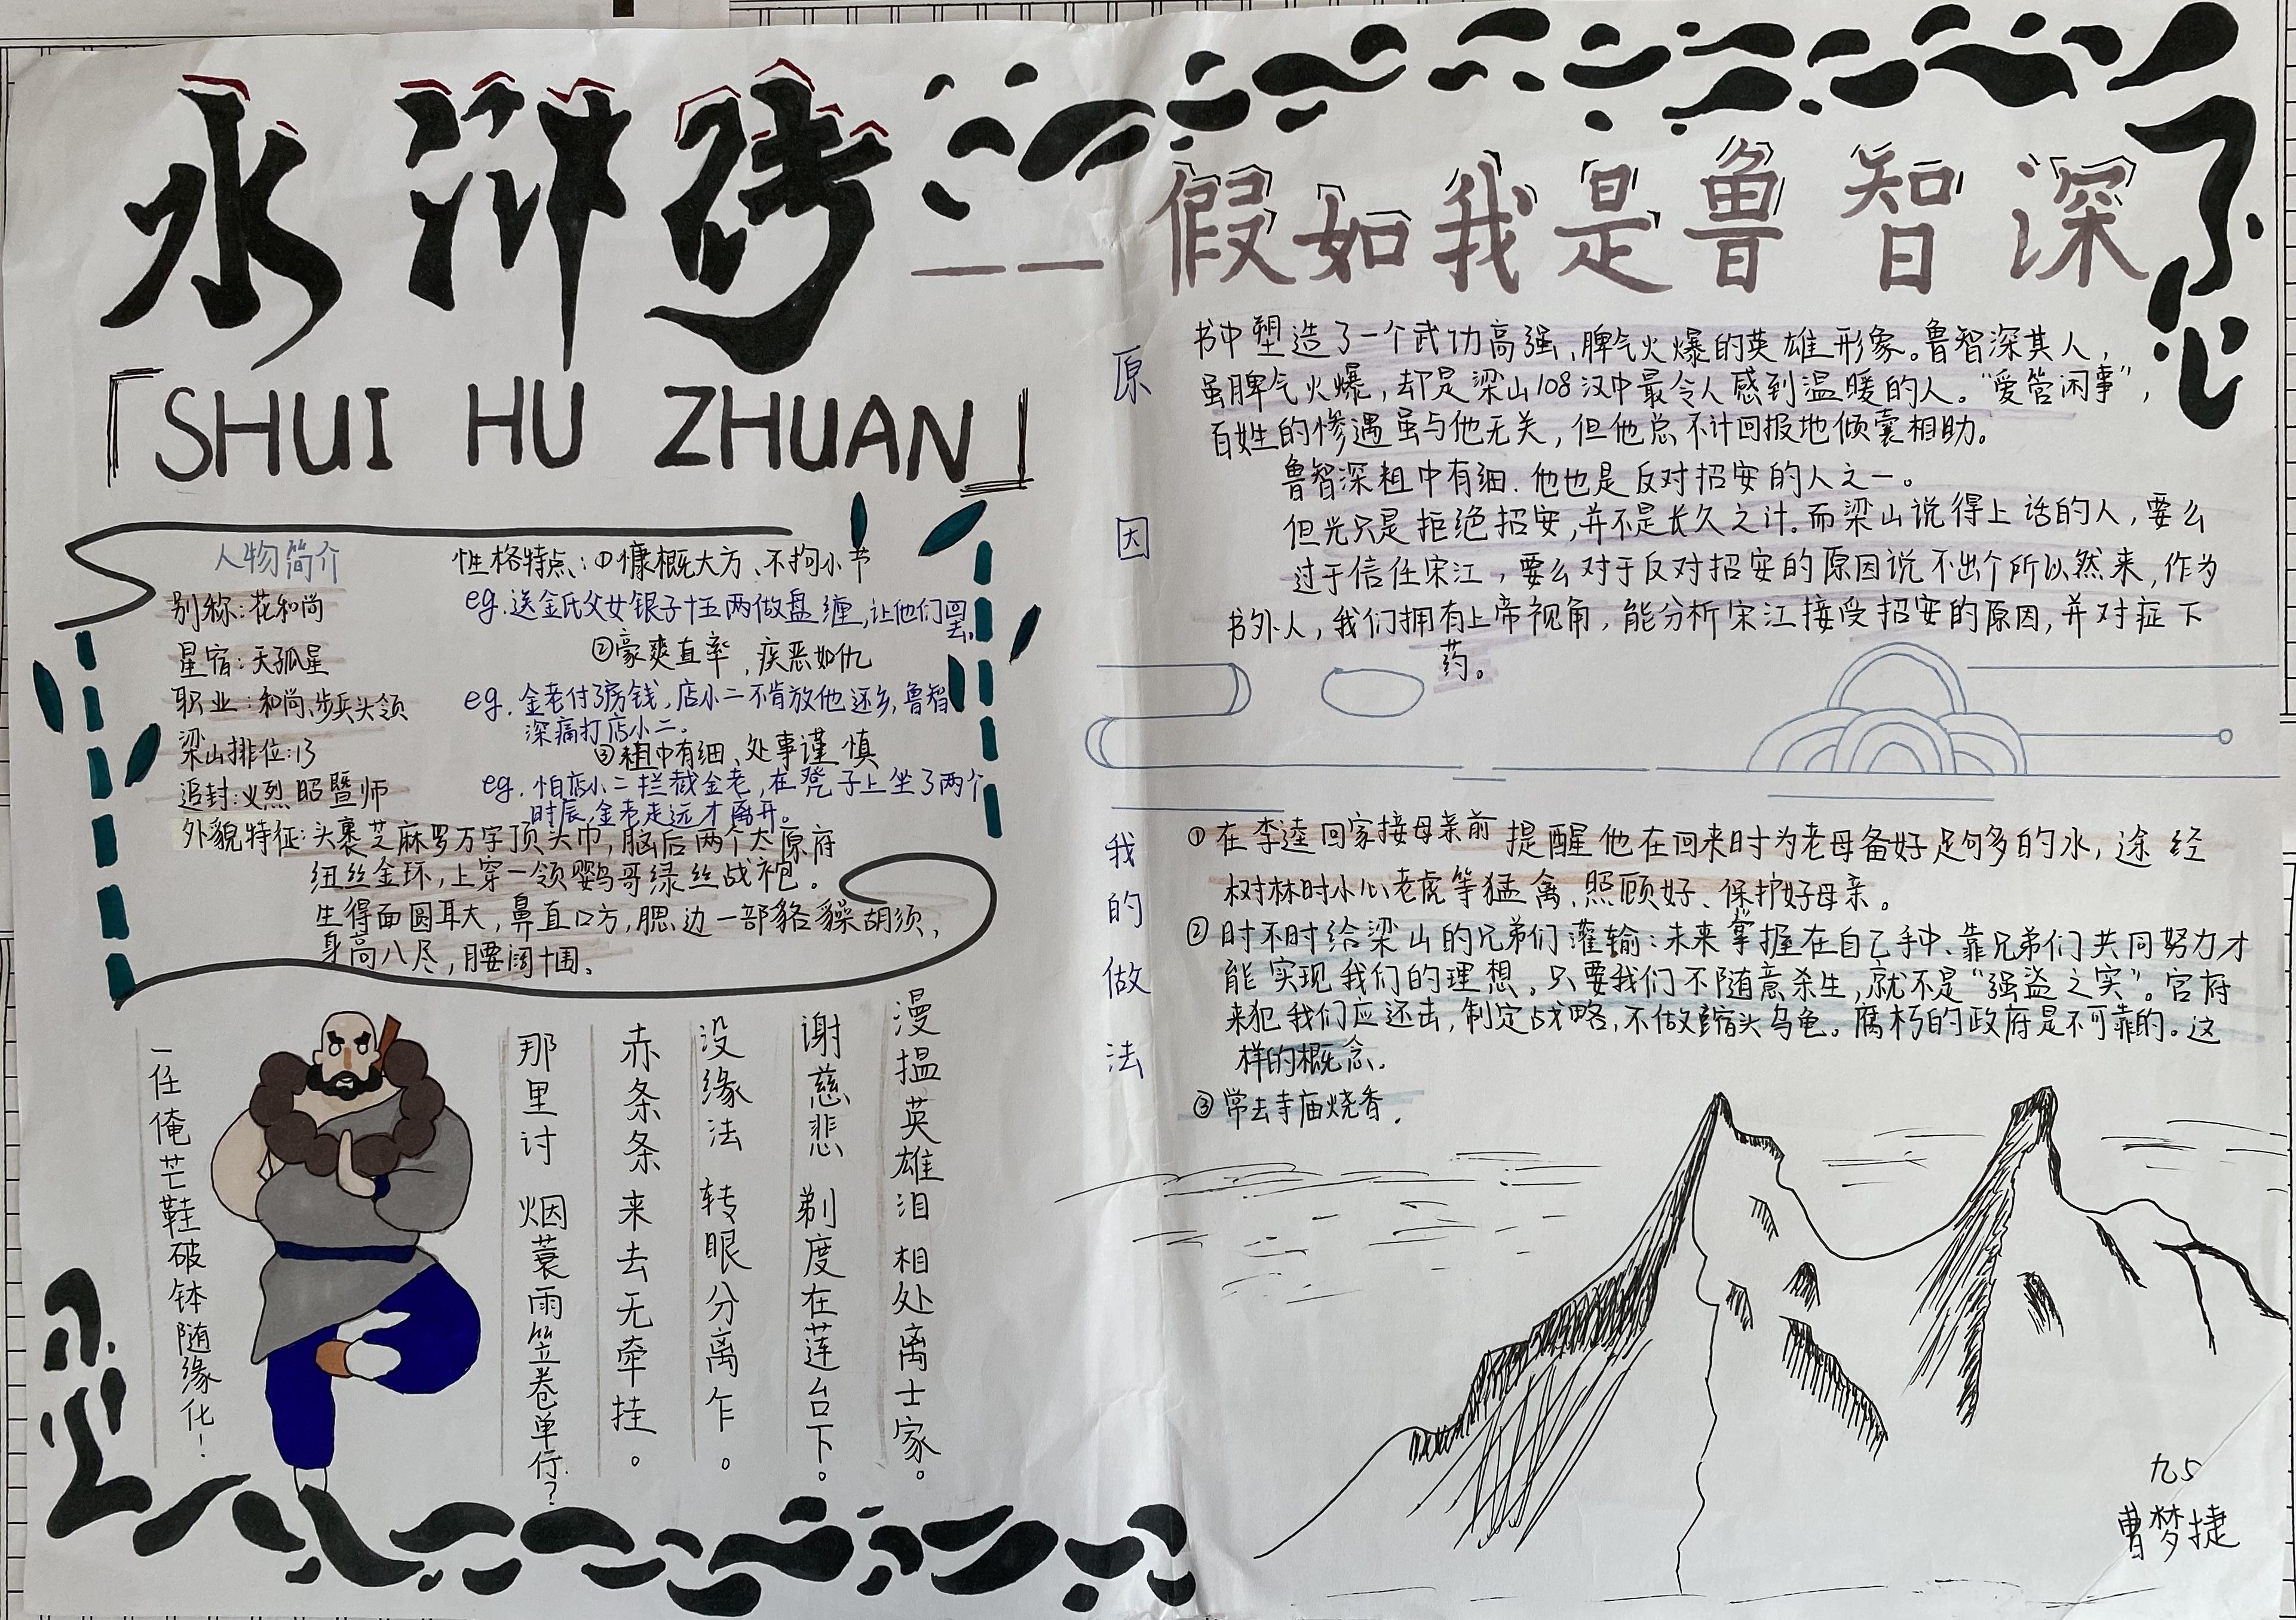 水浒传
——假如我是鲁智深
「SHUI HU ZHUAN」
人物简介
别称:花和尚
星宿:天孤星
职业:和尚、步兵头领
梁山排位:13
追封:义烈昭暨师
外貌特征:头裹芝麻罗万字顶头巾,脑后两个太原府
纽丝金环,上穿一领鹦哥绿丝战袍。
生得面圆耳大,鼻直口方,腮边一部貉貔胡须,
身高八尽,腰阔十围。
性格特点:①慷概大方、不拘小节
eg.送金氏父女银子十五两做盘缠,让他们回去。
②豪爽直率,疾恶如仇
eg.金老付了房钱,店小二不肯放他还乡,鲁智
深痛打店小二。
③粗中有细、处事谨慎
eg.怕店小二拦截金老,在凳子上坐了两个
时辰,金老走远才离开。
漫揾英雄泪 相处离士家。
谢慈悲 剃度在莲台下。
没缘法 转眼分离乍。
赤条条来去无牵挂。
那里讨 烟蓑雨笠卷单行?
一任俺芒鞋破钵随缘化!
原因
书中塑造了一个武功高强、脾气火爆的英雄形象。鲁智深其人,
虽脾气火爆,却是梁山108汉中最令人感到温暖的人。“爱管闲事”,
百姓的惨遇虽与他无关,但他总不计回报地倾囊相助。
鲁智深粗中有细.他也是反对招安的人之一。
但光只是拒绝招安,并不是长久之计。而梁山说得上话的人,要么
过于信任宋江,要么对于反对招安的原因说不出个所以然来,作为
书外人,我们拥有上帝视角,能分析宋江接受招安的原因,并对症下
药。
我的做法
①在李逵回家接母亲前提醒他在回来时为老母备好足够多的水,途经
树林时小心老虎等猛禽、照顾好、保护好母亲。
②时不时给梁山的兄弟们灌输:未来掌握在自己手中、靠兄弟们共同努力才
能实现我们的理想,只要我们不随意杀生,就不是“强盗之实”。官府
来犯我们应还击,制定战略,不做缩头乌龟。腐朽的政府是不可靠的。这
样的概念.
③常去寺庙烧香.
九5
曹梦捷